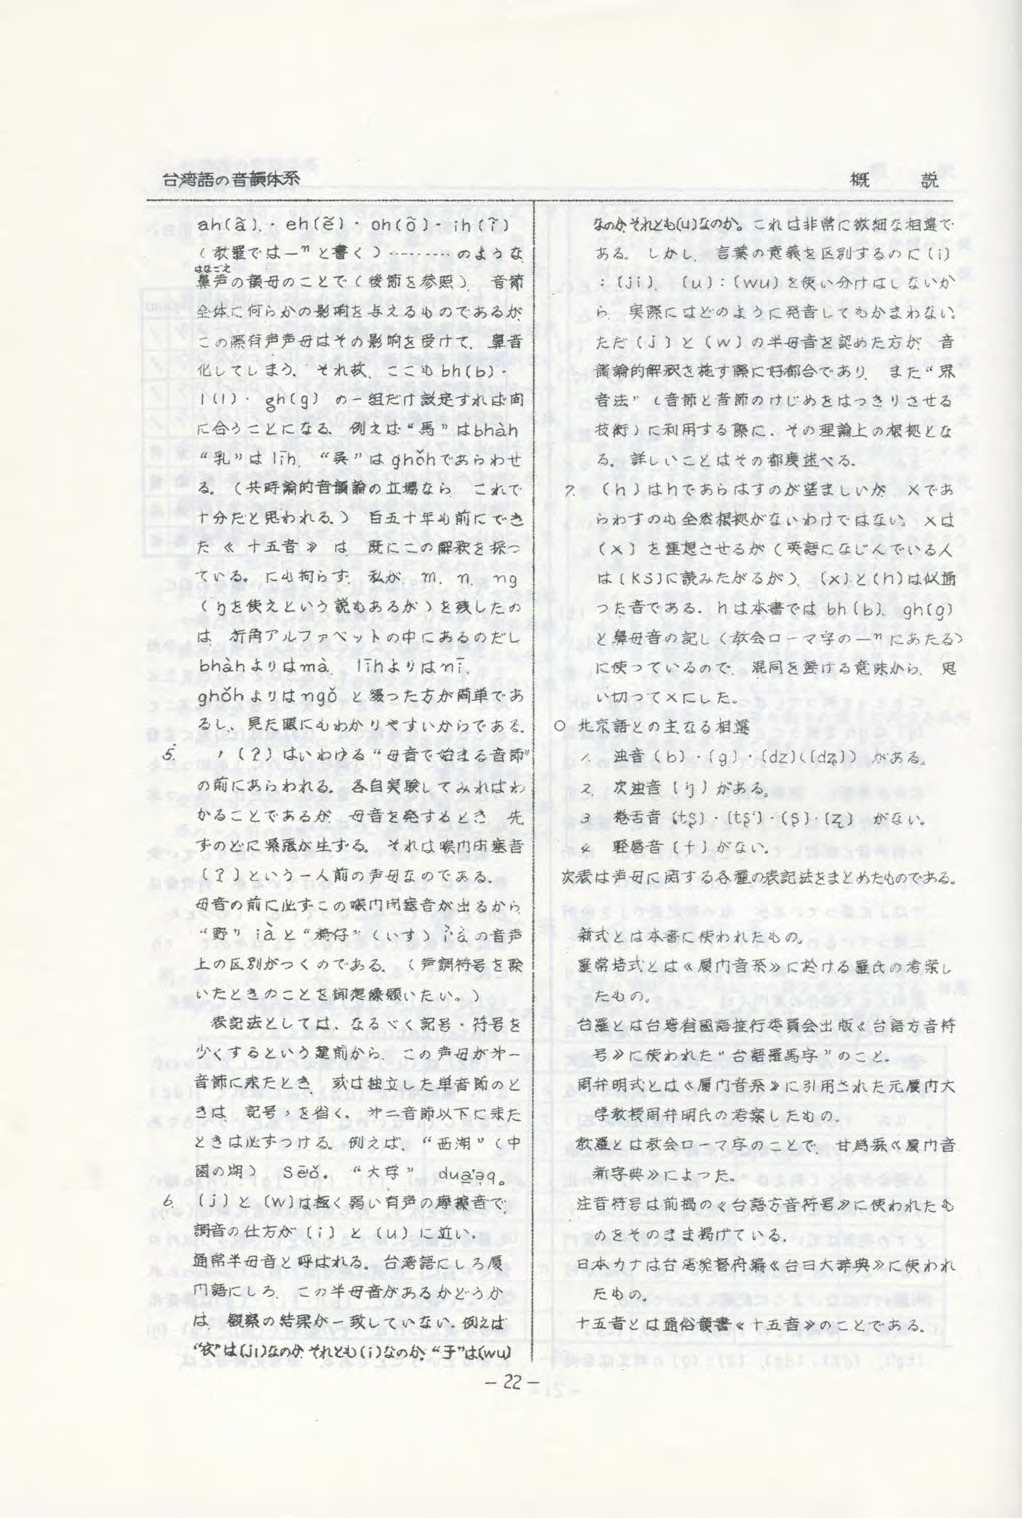 台湾語の音韻体系
概　説
ah(ã)・eh(ẽ)・oh(õ)・ih(ĩ)
(教羅では—ⁿと書く)………のような
はなごえ
鼻声の韻母のことで(後節を参照)、音節
全体に何らかの影响を与えるものであるが、
この際有声声母はその影响を受けて、鼻音
化してしまう。それ故、ここも bh(b)・
l(l)・gh(g) の一組だけ設定すれば間
に合うことになる。例えば“馬”はbhàh
“乳”は līh、“呉”は ghǒhであらわせ
る。(共時論的音韻論の立場なら、これで
十分だと思われる。) 百五十年も前にでき
た《十五音》は、既にこの解釈を採っ
ている。にも拘らず、私が、m、n、ng
(ŋを使えという説もあるが)を残したの
は、折角アルファベットの中にあるのだし
bhàhよりはmà、līhよりはnī、
ghǒhよりはngǒ と綴った方が簡単であ
るし、見た眼にもわかりやすいからである。
5. ’(ʔ)はいわける“母音で始まる音節”
の前にあらわれる。各自実験してみればわ
かることであるが、母音を発するとき、先
ずのどに緊張が生ずる。それは喉門閉塞音
(ʔ)という一人前の声母なのである。
母音の前に必ずこの喉門閉塞音が出るから
“野” iàと“椅仔”(いす) i'àの音声
上の区別がつくのである。(声調符号を除
いたときのことを御想像願いたい。)
表記法としては、なるべく記号・符号を
少くするという建前から、この声母がオ一
音節に来たとき、或は独立した単音節のと
きは、記号’を省く。オ二音節以下に来た
ときは必ずつける。例えば、“西湖”(中
國の湖) Sēǒ。“大学” dua'aq。
6. (j)と(w)は極く弱い有声の摩擦音で、
調音の仕方が(i)と(u)に近い。
通常半母音と呼ばれる。台湾語にしろ厦
門語にしろ、この半母音があるかどうか
は、観察の結果が一致していない。例えば
“衣”は(ji)なのか、それとも(i)なのか、“于”は(wu)
なのか、それとも(u)なのか。これは非常に微細な相違で
ある。しかし、言葉の意義を区別するのに(i)
:(ji)、(u):(wu)を使い分けはしないか
ら、実際にはどのように発音してもかまわない。
ただ(j)と(w)の半母音を認めた方が、音
韻論的解釈を施す際に好都合であり、また“界
音法”(音節と音節のけじめをはっきりさせる
技術)に利用する際に、その理論上の根拠とな
る。詳しいことはその都度述べる。
7. (h)はhであらはすのが望ましいが、xであ
らわすのも全然根拠がないわけではない。xは
(x)を連想させるが(英語になじんでいる人
は(ks)に読みたがるが)、(x)と(h)は似通
った音である。hは本書では bh(b)、gh(g)
と鼻母音の記し(教会ローマ字の—ⁿにあたる)
に使っているので、混同を避ける意味から、思
い切ってxにした。
○ 北京語との主なる相違
1. 濁音(b)・(g)・(dz)((dʑ))がある。
2. 次濁音(ŋ)がある。
3. 捲舌音(tʂ)・(tʂ‘)・(ʂ)・(ʐ)がない。
4. 軽唇音(f)がない。
次表は声母に関する各種の表記法をまとめたものである。
新式とは本書に使われたもの。
羅常培式とは《厦門音系》に於ける羅氏の考案し
たもの。
台羅とは台湾省國語推行委員会出版《台語方音符
号》に使われた“台語羅馬字”のこと。
周弁明式とは《厦門音系》に引用された元厦門大
学教授周弁明氏の考案したもの。
教羅とは教会ローマ字のことで、甘為霖《厦門音
新字典》によった。
注音符号は前掲の《台語方音符号》に使われたも
のをそのまま掲げている。
日本カナは台湾総督府編《台日大辞典》に使われ
たもの。
十五音とは通俗韻書《十五音》のことである。
－22－